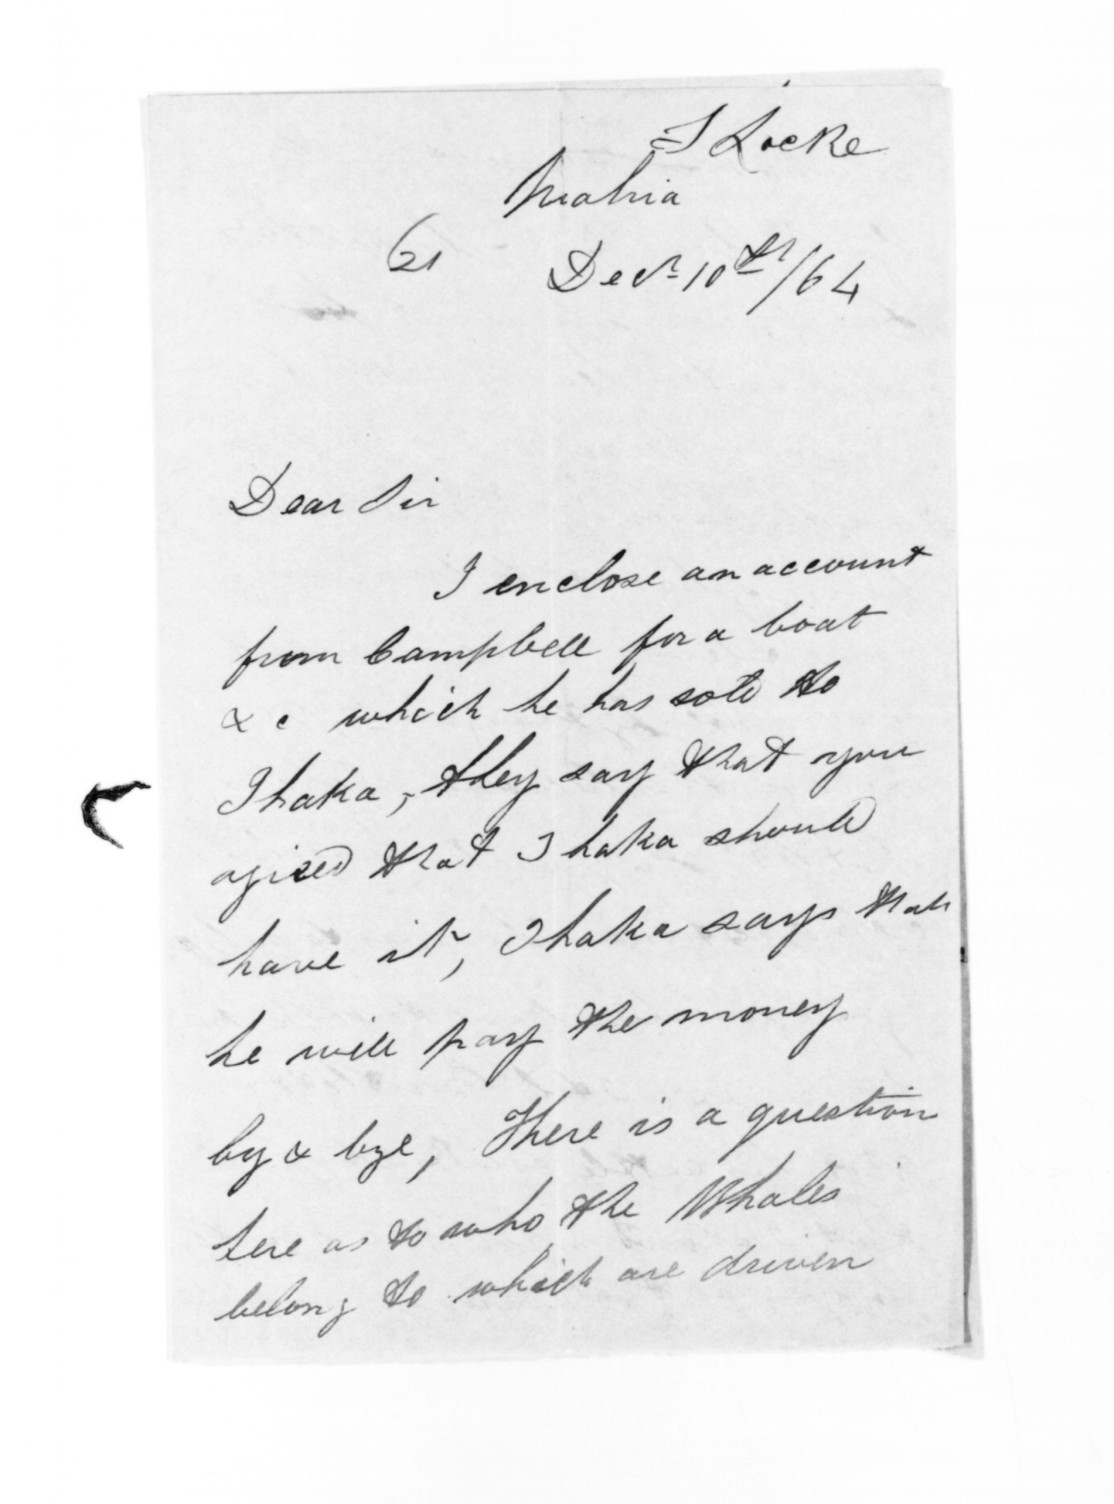 S Locke
Mahia
21
Decr 10th/64
Dear Sir
I enclose an account
from Campbell for a boat
& c which he has sold to
Ihaka, they say that you
agreed that Ihaka should
have it, Ihaka says that
he will pay the money
by & bye, There is a question
here as to who the Whales
belong to which are driven